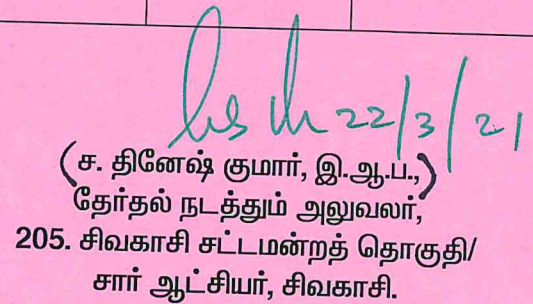 22/3/21
(ச. தினேஷ் குமார், இ.ஆ.ப.,)
தேர்தல் நடத்தும் அலுவலர்,
205. சிவகாசி சட்டமன்றத் தொகுதி/
சார் ஆட்சியர், சிவகாசி.